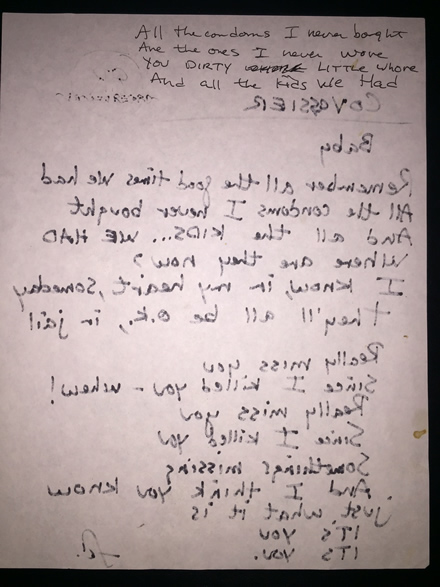 All the condoms I never bought
And the ones I never wore
YOU DIRTY LITTLE Whore
And all the kids We Had
COVASSIER
Baby
Remember all the good times we had
All the condoms I never bought
And all the KIDS... WE HAD
Where are they now?
I know, in my heart, someday,
they'll all be O.K., in jail
Really miss you
Since I killed you - whew!
Really miss you
Since I killed you
Somethings missing
And I think you know
just what it is
IT'S YOU
IT'S YOU.